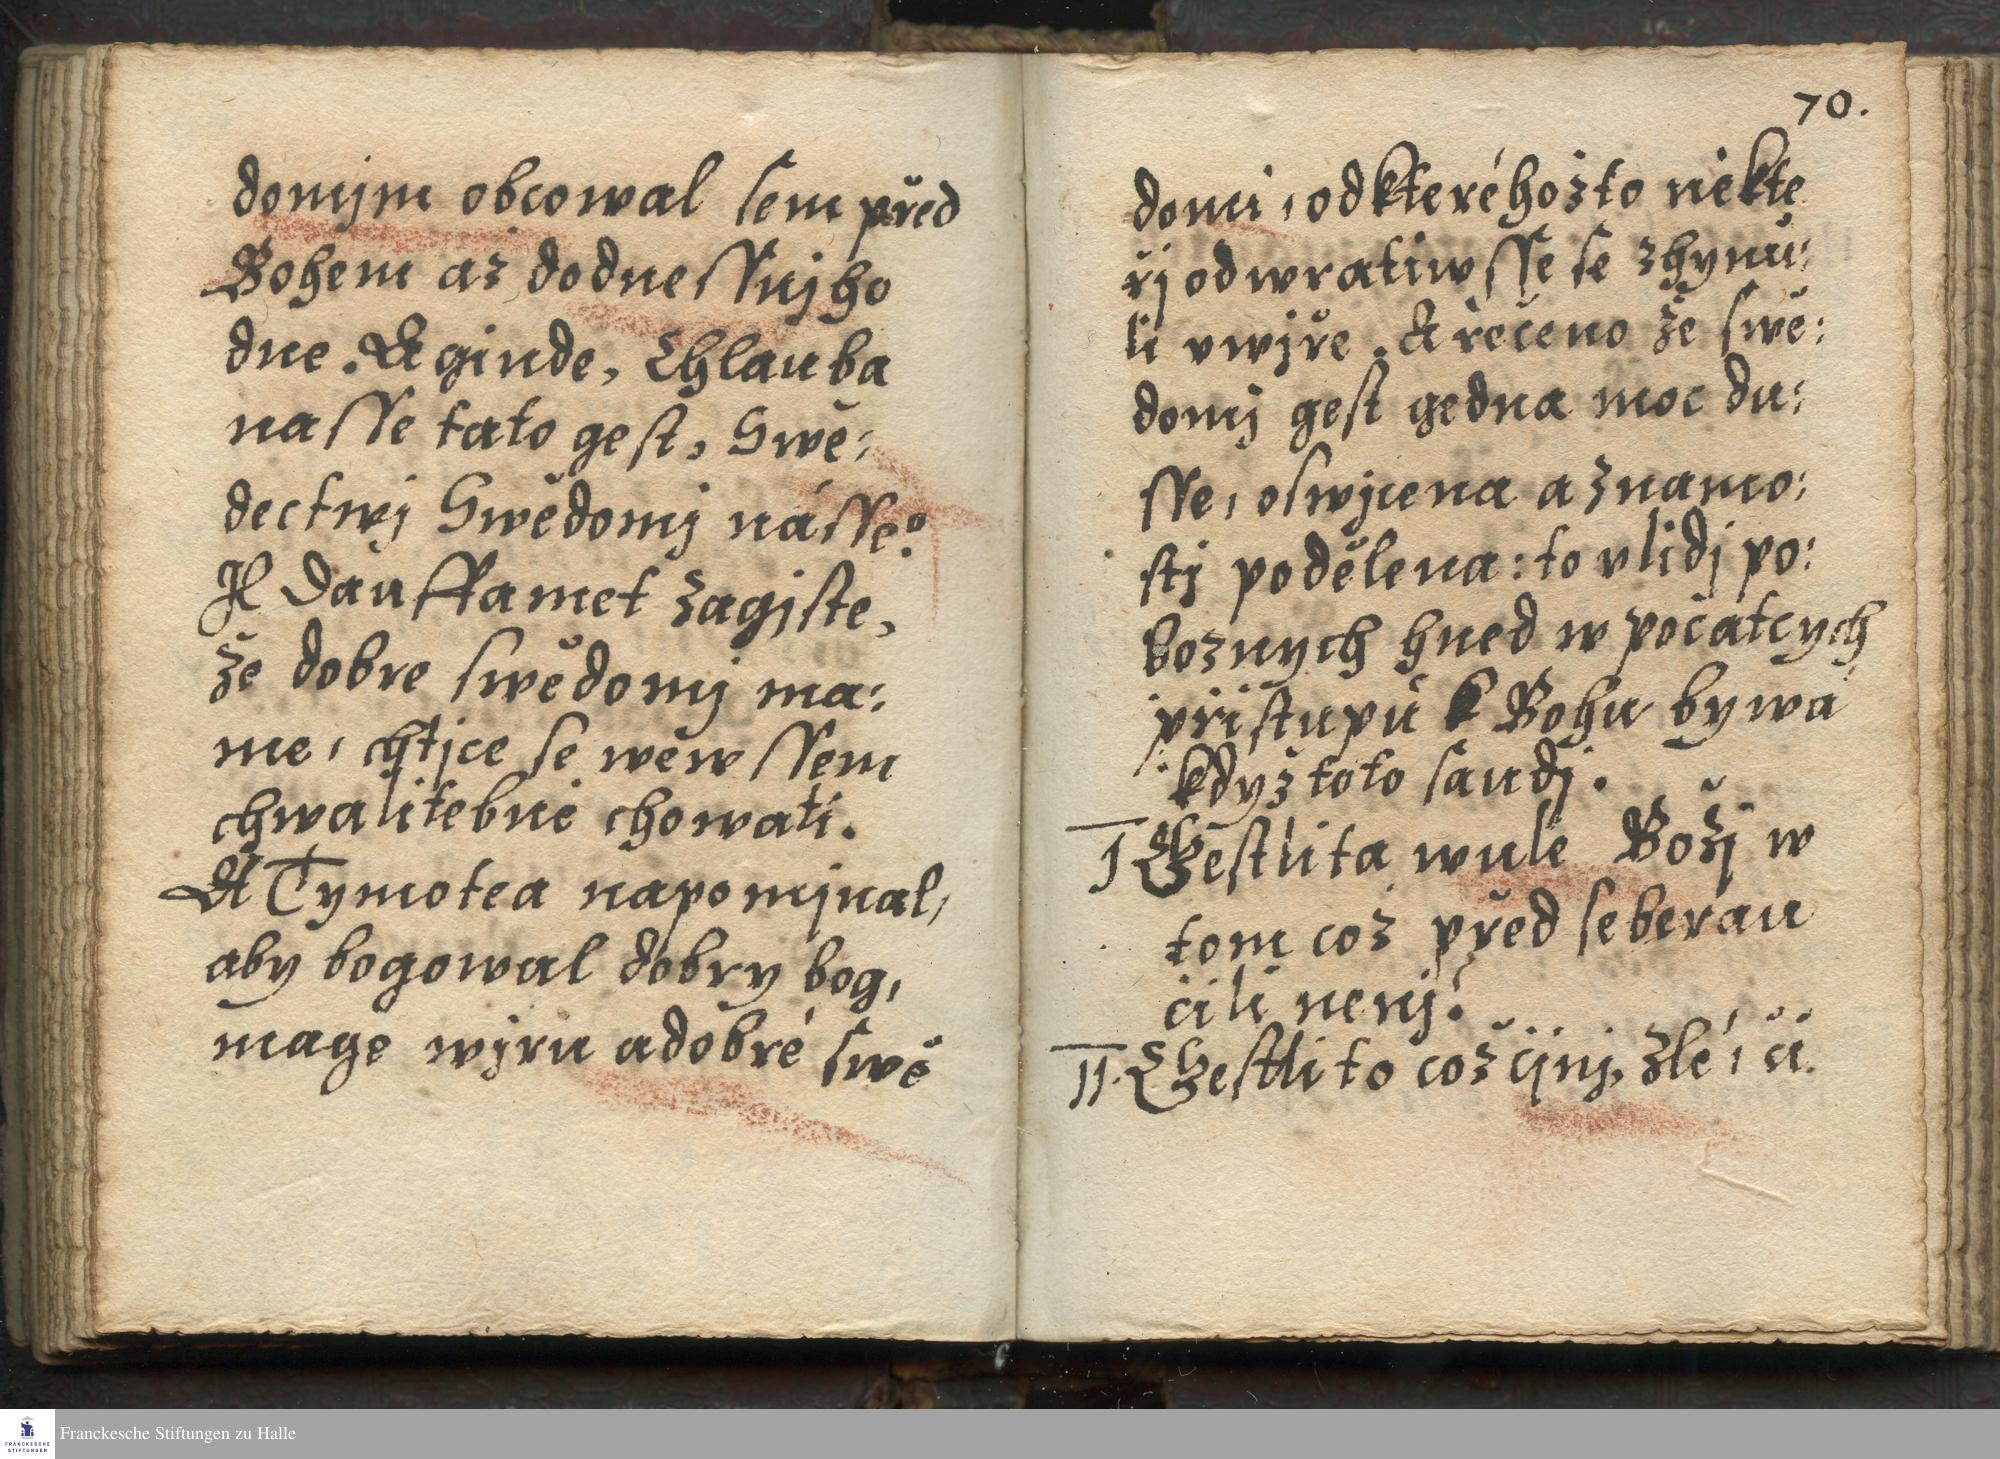 domjm obcowal sem před
Bohem až dodnessnjho
dne. A ginde, Chlauba
nasse tato gest, Swě:
dectwj Swědomj násse?
Il Dauffamet zagiste,
že dobre swědomj ma:
me, chtjce se wewssem
chwalitebně chowati.
A Tymotea napomjnal,
aby bogowal dobry bog,
mage wjru a dobré swě
70.
domi, od kteréhožto někte
řj odwratiwsse se zhynu:
li v wjře. A řečeno že swě:
domj gest gedna moc du:
sse, oswjcena a znamo:
stj podělena: to v lidj po:
božnych hned w počatcych
přistupu k Bohu bywá
když toto saudj.
I Gestli ta wule Božj w
tom což před se berau
čili nenj?
II. Gestli to což činj, zlé, či
Franckesche Stiftungen zu Halle
FRANCKESCHE
STIFTUNGEN